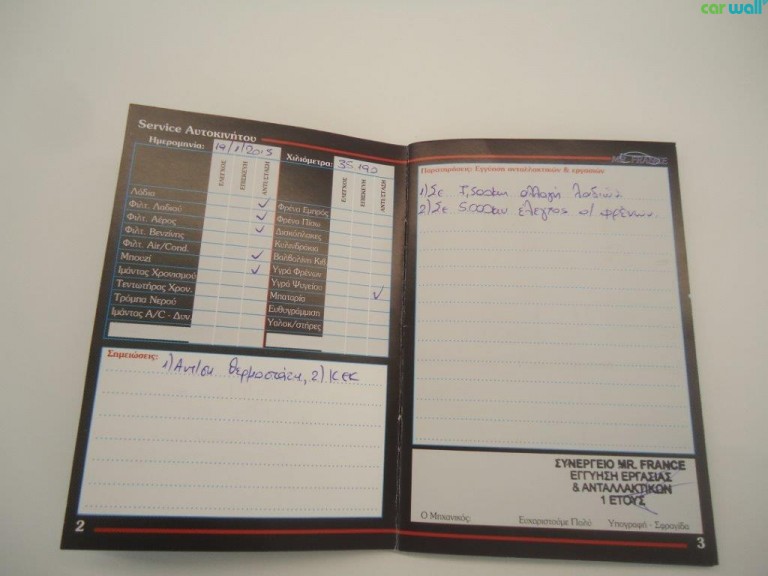 car wall
Service Αυτοκινήτου
Ημερομηνία: 19/1/2015 Χιλιόμετρα: 35190
ΕΛΕΓΧΟΣ ΕΠΙΣΚΕΥΗ ΑΝΤΙ/ΣΤΑΣΗ ΕΛΕΓΧΟΣ ΕΠΙΣΚΕΥΗ ΑΝΤΙ/ΣΤΑΣΗ
Λάδια Φρένα Εμπρός
Φιλτ. Λαδιού Φρένα Πίσω
Φιλτ. Αέρος Δισκόπλακες
Φιλτ. Βενζίνης Κυλινδράκια
Φιλτ. Air/Cond. Βαλβολίνη Κιβ.
Μπουζί Υγρά Φρένων
Ιμάντας Χρονισμού Υγρά Ψυγείου
Τεντωτήρας Χρον. Μπαταρία
Τρόμπα Νερού Ευθυγράμμιση
Ιμάντας A/C - Δυν. Υαλοκ/στήρες
Σημειώσεις: 1) Αντ/ση θερμοστάτη, 2) ΚΕΚ
2
MR. FRANCE
Παρατηρήσεις: Εγγύηση ανταλλακτικών & εργασιών
1) Σε 7,500km αλλαγή λαδιών
2) Σε 5.000km έλεγχος φρένων.
ΣΥΝΕΡΓΕΙΟ MR. FRANCE
ΕΓΓΥΗΣΗ ΕΡΓΑΣΙΑΣ
& ΑΝΤΑΛΛΑΚΤΙΚΩΝ
1 ΕΤΟΥΣ
Ο Μηχανικός: Ευχαριστούμε Πολύ Υπογραφή - Σφραγίδα
3